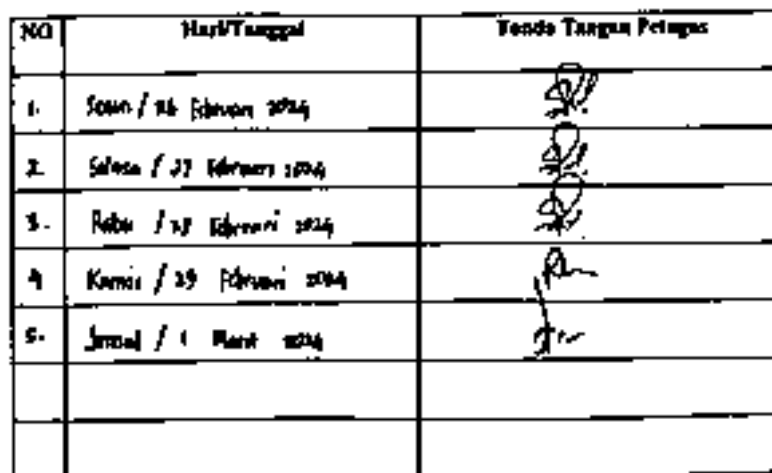 NO Hari/Tanggal Tanda Tangan Petugas
1. Senin / 26 Februari 2024
2. Selasa / 27 Februari 2024
3. Rabu / 28 Februari 2024
4 Kamis / 29 Februari 2024
5. Jumat / 1 Maret 2024